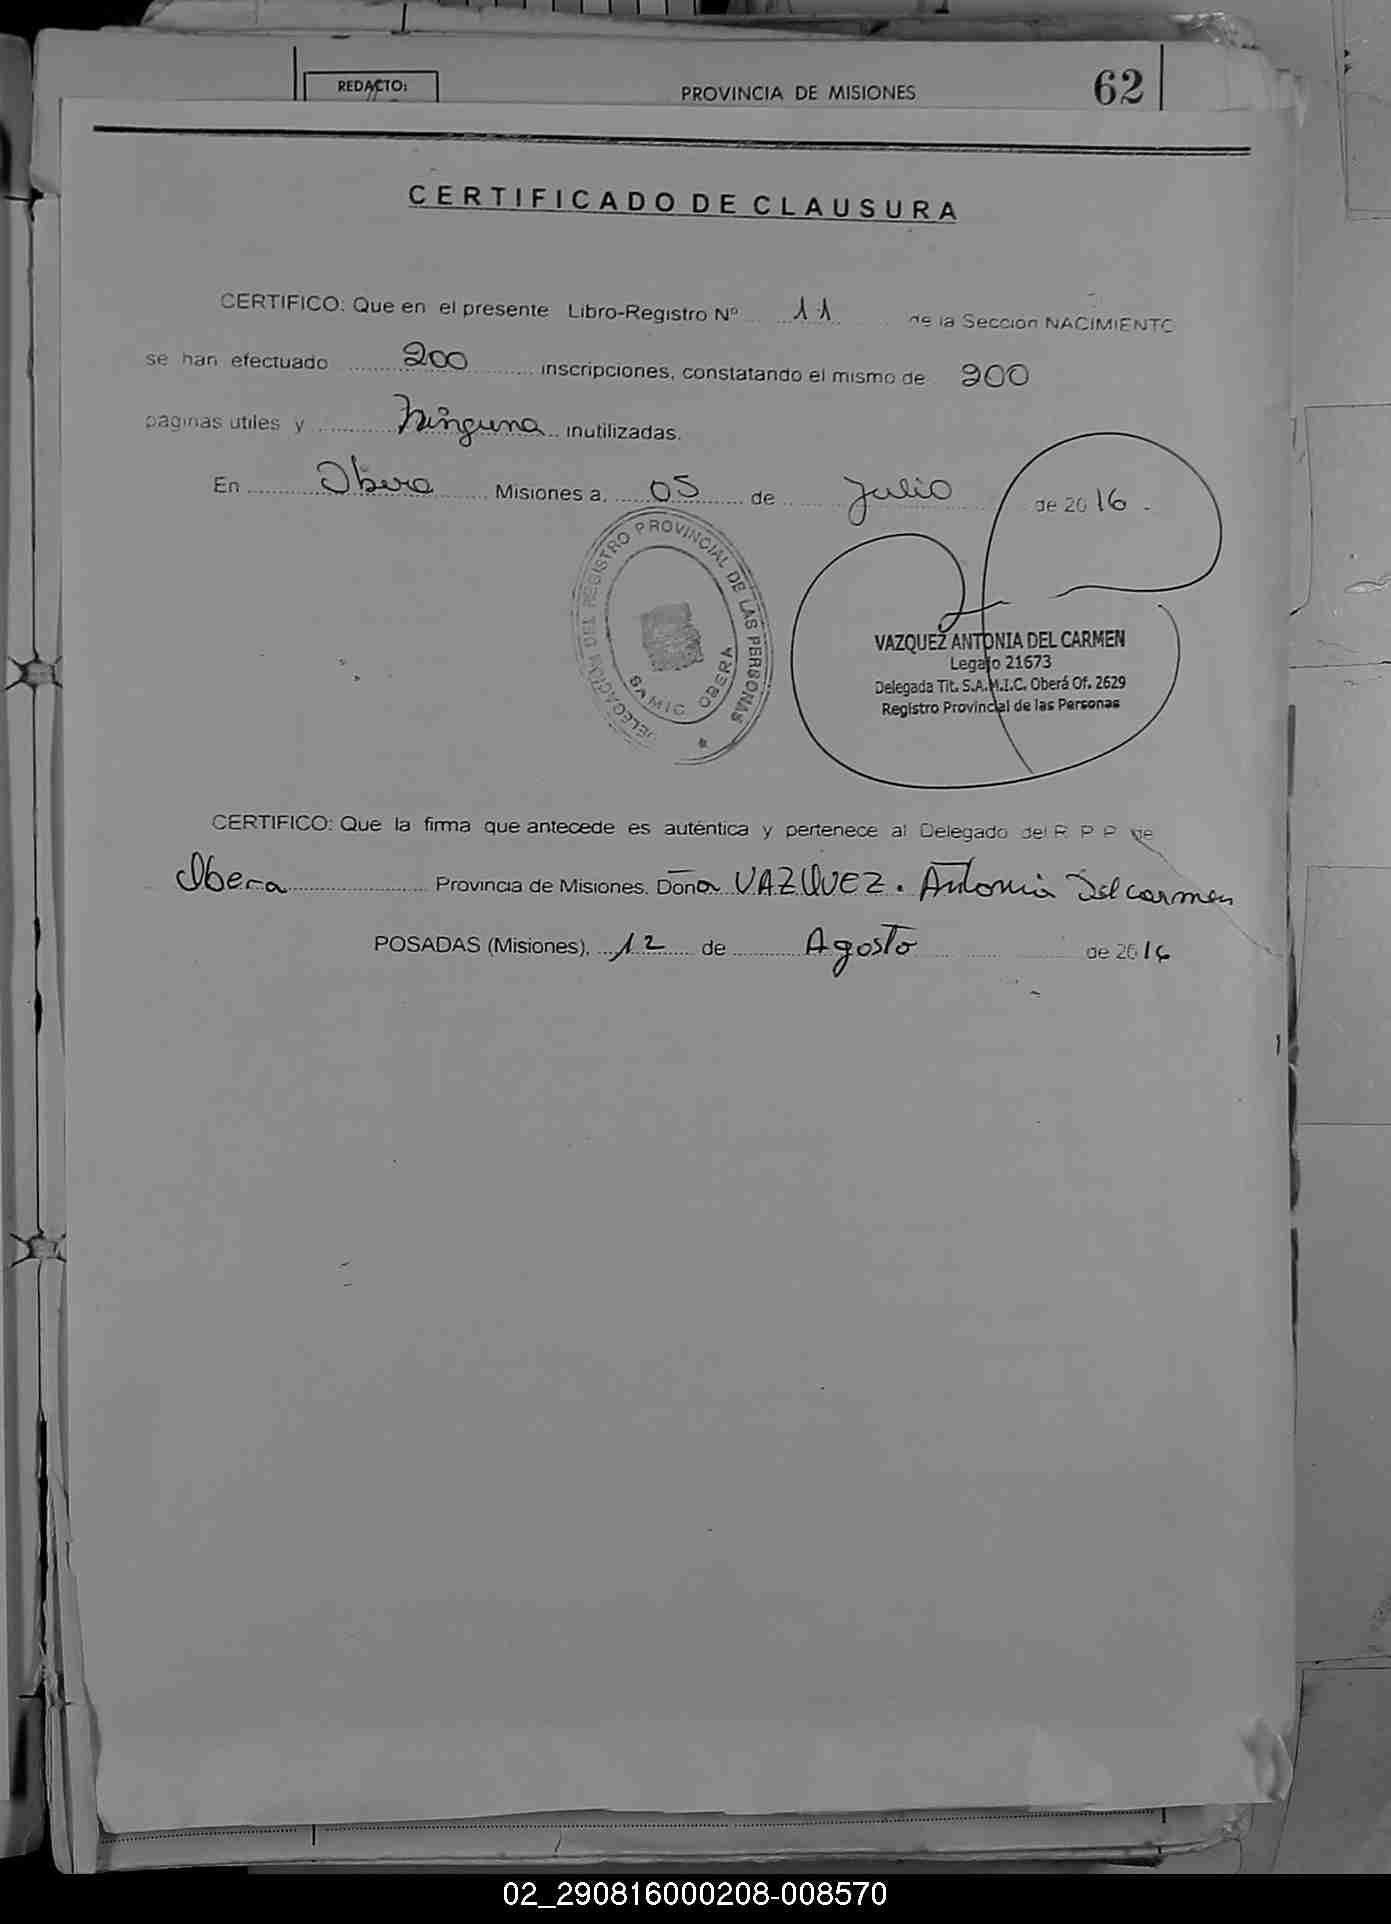 REDACTO:
PROVINCIA DE MISIONES
62
CERTIFICADO DE CLAUSURA
CERTIFICO: Que en el presente Libro-Registro Nº 11 de la Sección NACIMIENTO
se han efectuado 200 inscripciones, constatando el mismo de 200
páginas utiles y Ninguna inutilizadas.
En Obera Misiones a, 05 de Julio de 2016.
DELEGACION DEL REGISTRO PROVINCIAL DE LAS PERSONAS
SAMIC OBERA
VAZQUEZ ANTONIA DEL CARMEN
Legajo 21673
Delegada Tit. S.A.M.I.C. Oberá Of. 2629
Registro Provincial de las Personas
CERTIFICO: Que la firma que antecede es auténtica y pertenece al Delegado del R. P. P. de
Obera Provincia de Misiones. Doña VAZQUEZ. Antonia Del carmen
POSADAS (Misiones), 12 de Agosto de 2016
02_290816000208-008570